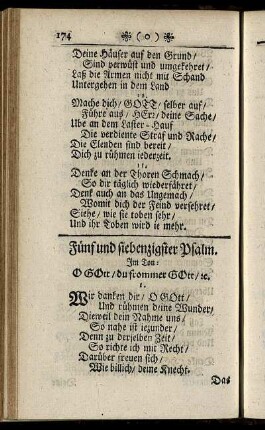 174 ❧ ( o ) ❧
Deine Häuser auf den Grund/
Sind verwüst und umgekehret/
Laß die Armen nicht mit Schand
Untergehen in dem Land
10.
Mache dich/ GOTT/ selber auf/
Führe aus/ HErr/ deine Sache/
Ube an dem Laster-Hauf
Die verdiente Straf und Rache/
Die Elenden sind bereit/
Dich zu rühmen iederzeit.
11.
Denke an der Thoren Schmach/
So dir täglich wiederfähret/
Denk auch an das Ungemach/
Womit dich der Feind versehret/
Siehe/ wie sie toben sehr/
Und ihr Toben wird ie mehr.
Fünf und siebenzigster Psalm.
Im Ton:
O GOtt/ du frommer GOtt/ ꝛc.
1.
Wir danken dir/ O GOtt/
Und rühmen deine Wunder/
Dieweil dein Nahme uns/
So nahe ist iezunder/
Denn zu derselben Zeit/
So richte ich mit Recht/
Darüber freuen sich/
Wie billich/ deine Knecht.
Das